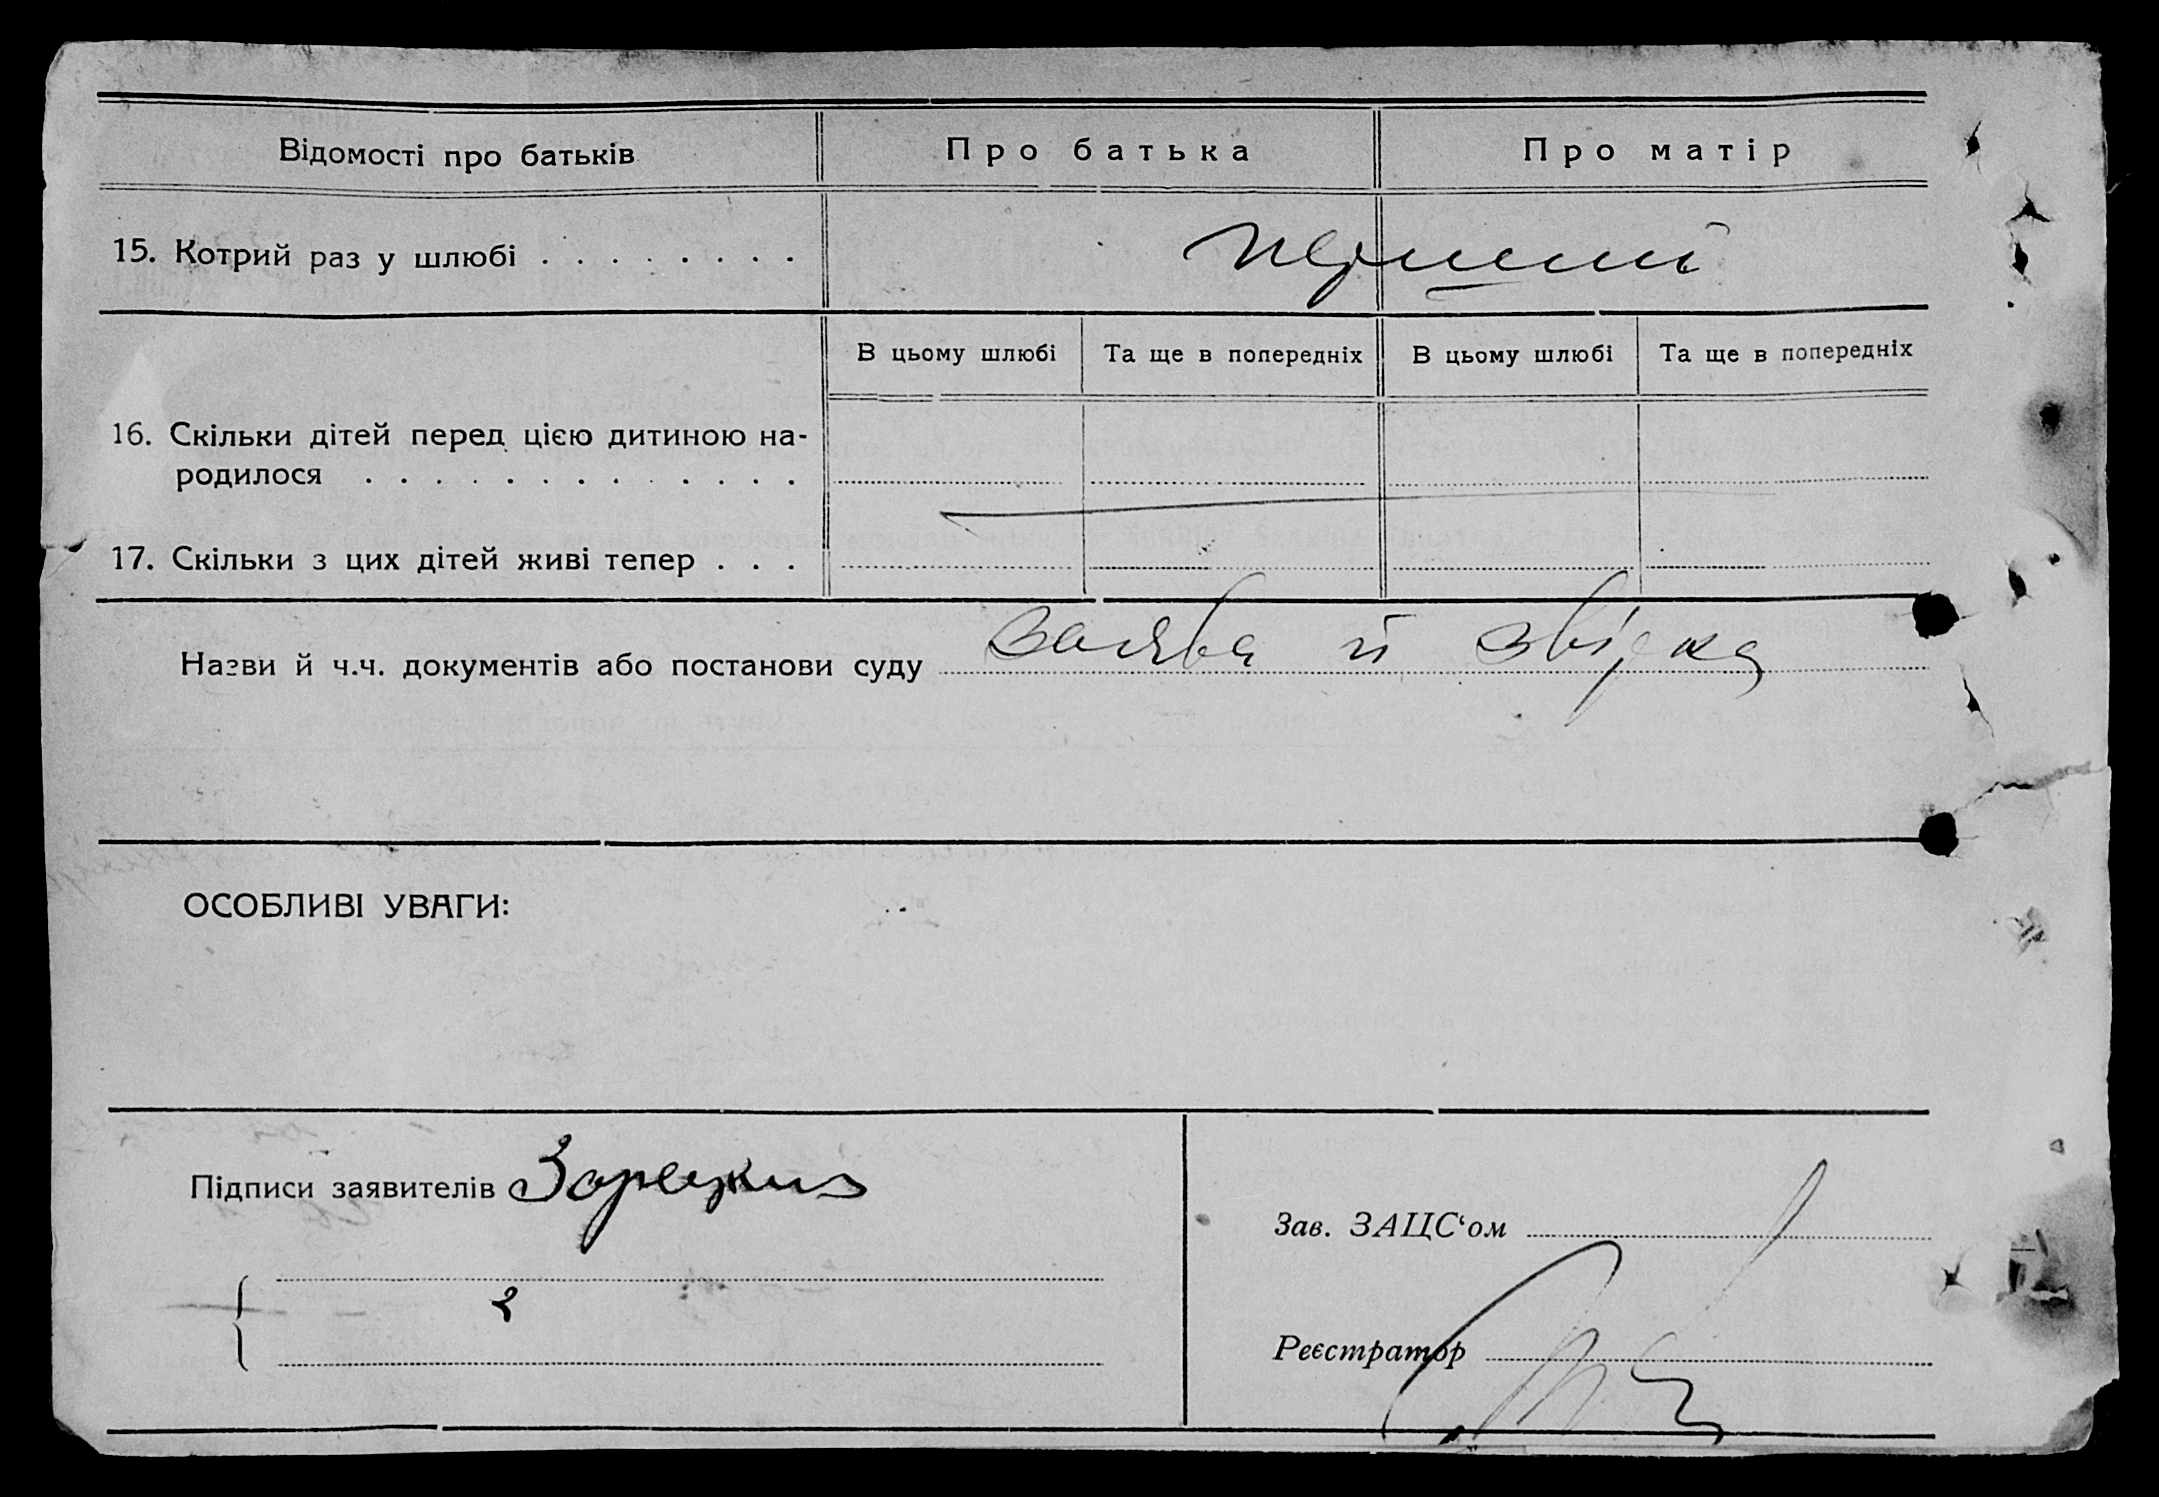 Відомості про батьків Про батька Про матір
15. Котрий раз у шлюбі . . . . . . . . перший
В цьому шлюбі Та ще в попередніх В цьому шлюбі Та ще в попередніх
16. Скільки дітей перед цією дитиною на-
родилося . . . . . . . . . . . . .
17. Скільки з цих дітей живі тепер . . .
Назви й ч.ч. документів або постанови суду заява й звірка
ОСОБЛИВІ УВАГИ:
Підписи заявителів Зарецкий
Зав. ЗАЦС‘ом
Реєстратор